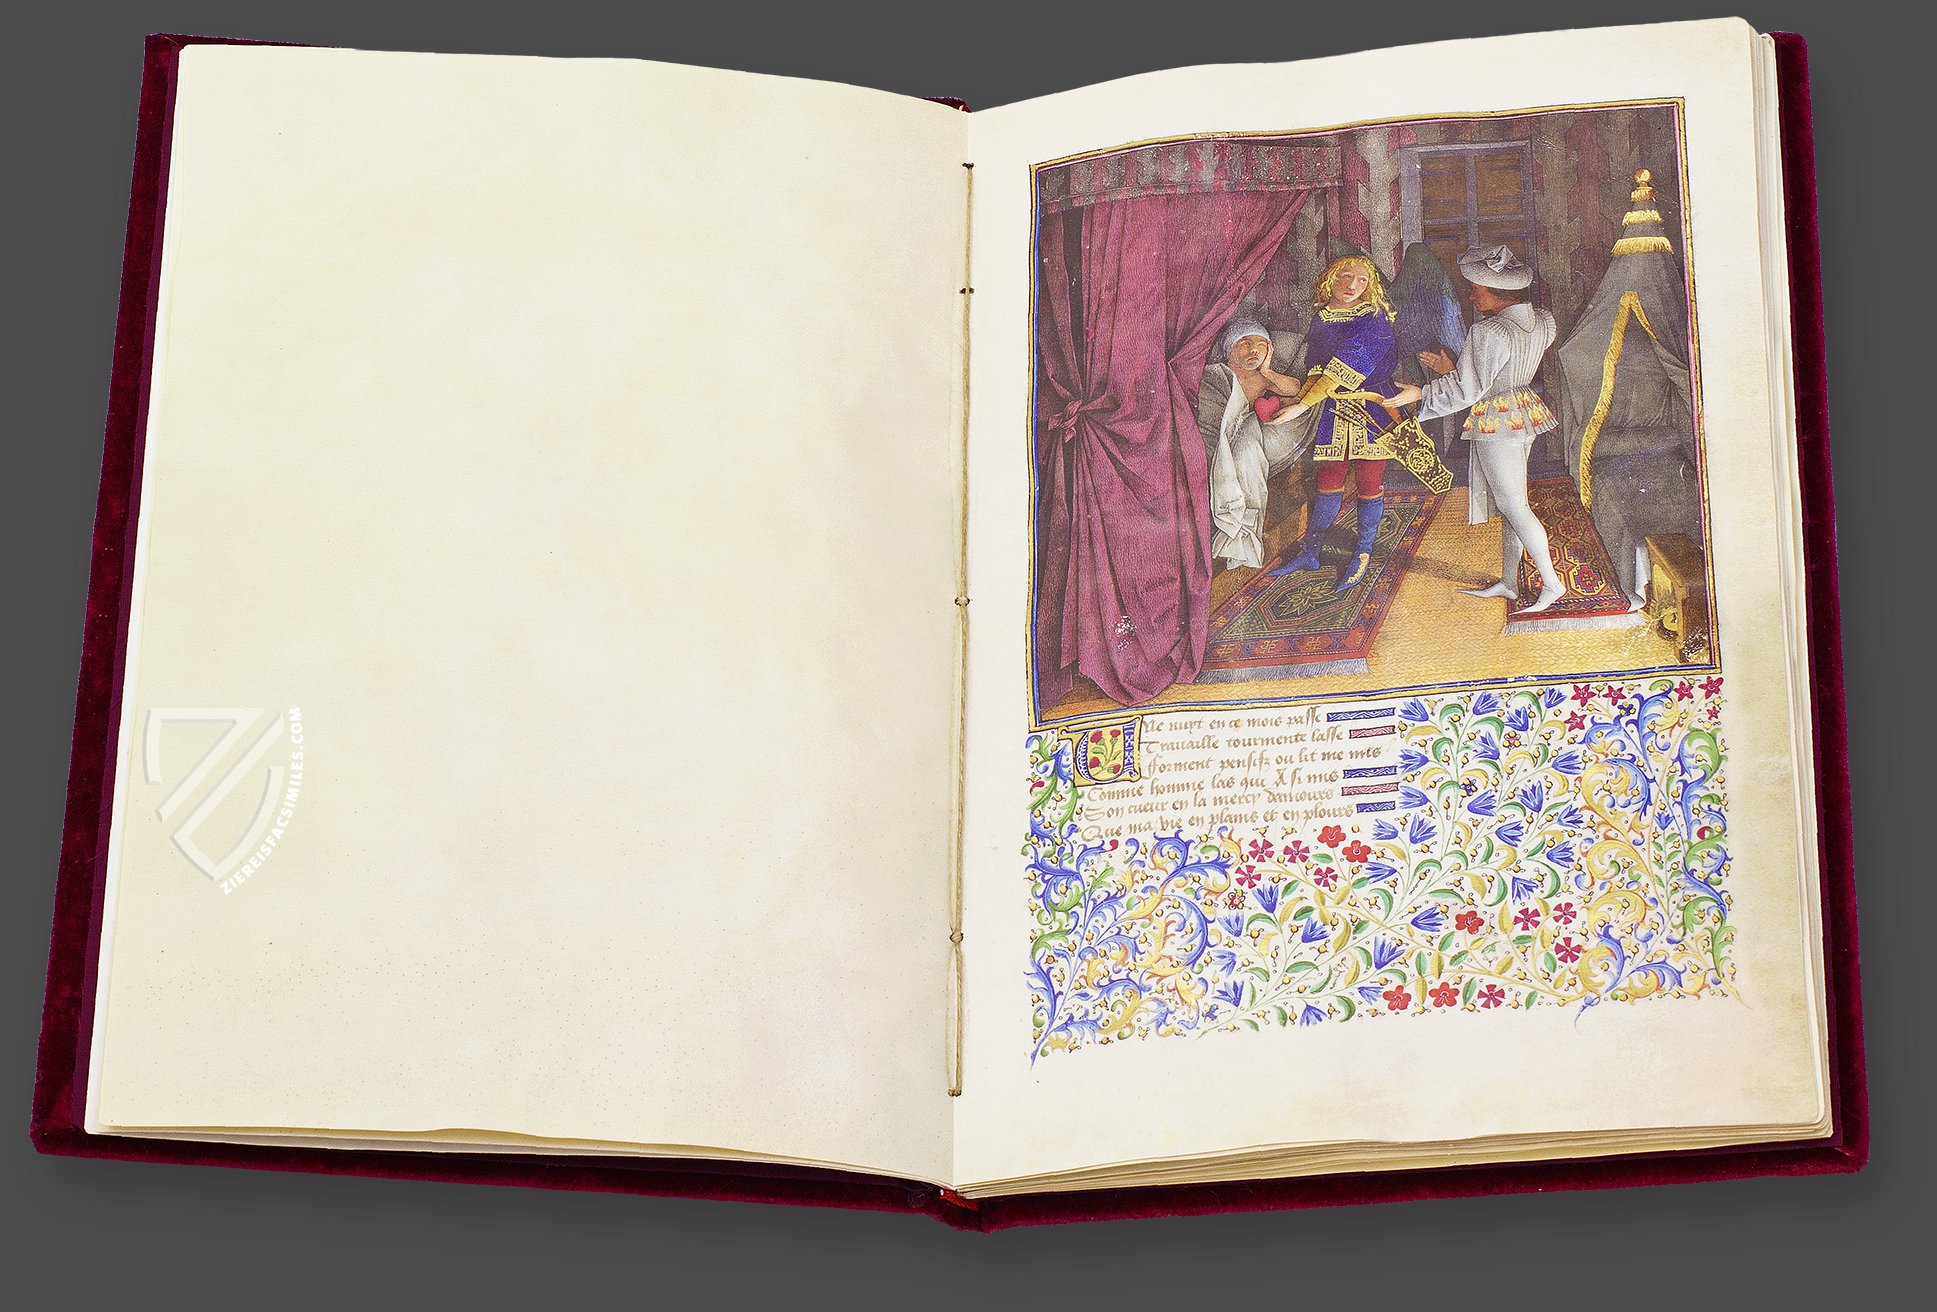 ZIEREISFACSIMILES.COM
Une nuyt en ce mois passe
Travaille tourmente lasse
Forment pensifz ou lit me mis
Comme homme las qui A si mis
Son cueur en la mercy damours
Que ma vie en plains et en plours